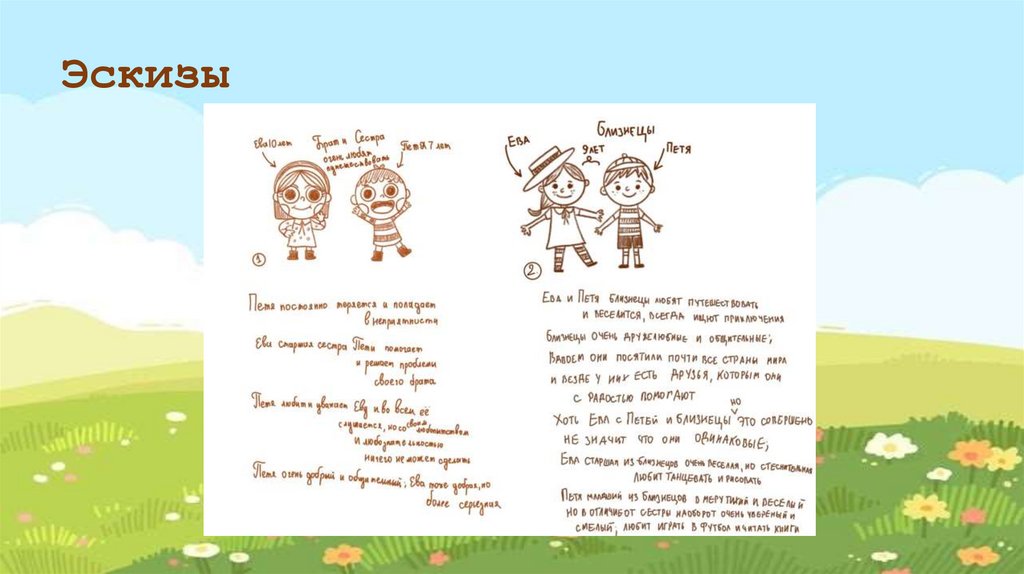 Эскизы
Ева 10 лет
Брат и Сестра
очень любят
Петя 7 лет
1
Петя постоянно теряется и попадает
в неприятности
Ева старшая сестра Пети помогает
и решает проблемы
своего брата
Петя любит и уважает Еву и во всем её
слушается, но со своим
любопытством
и любознательностью
ничего не может сделать
Петя очень добрый и общительный; Ева тоже добрая, но
более серьезная
Близнецы
Ева
9 лет
Петя
2
Ева и Петя близнецы любят путешествовать
и веселится, всегда ищут приключения
Близнецы очень дружелюбные и общительные;
Вдвоем они посятили почти все страны мира
и везде у них есть друзья, которым они
с радостью помогают
но
Хоть Ева с Петей и близнецы это совершено
не значит что они одинаковые;
Ева старшая из близнецов очень веселая, но стеснительная
любит танцевать и рисовать
Петя младший из близнецов в меру тихий и веселый
но в отличие от сестры наоборот очень увереный и
смелый, любит играть в футбол и читать книги